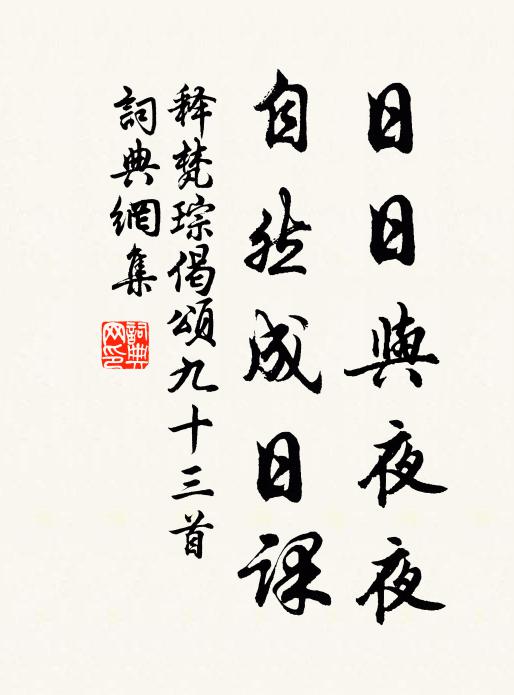 日日與夜夜
自然成日課
释梵琮偈頌九十三首
詞典網集
詞典網印